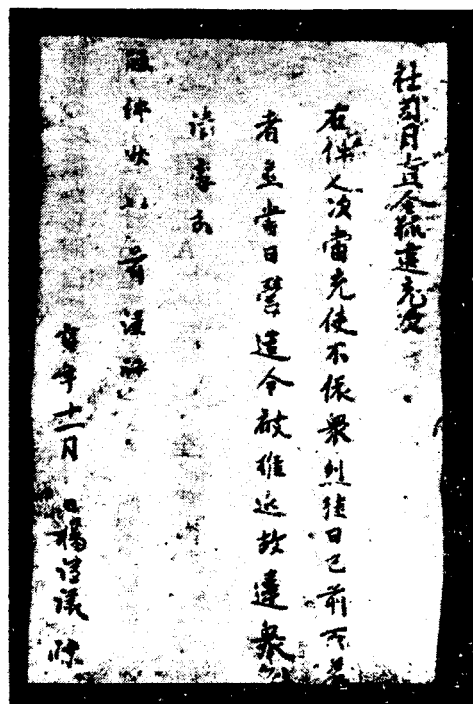 社司月直令狐建充次
右件人次當充使不依衆烈往日已前所差
者並當日營造今被推延故違衆
請處分
牒件狀如前謹牒
寅年十一月 日楊謙讓牒